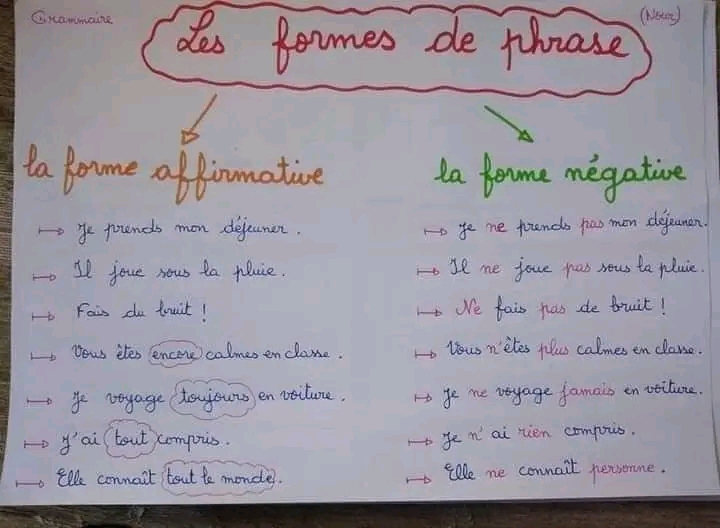 Grammaire
(Nour)
Les formes de phrase
la forme affirmative
la forme négative
Je prends mon déjeuner.
Il joue sous la pluie.
Fais du bruit !
Vous êtes encore calmes en classe.
Je voyage toujours en voiture.
J'ai tout compris.
Elle connaît tout le monde.
Je ne prends pas mon déjeuner.
Il ne joue pas sous la pluie.
Ne fais pas de bruit !
Vous n'êtes plus calmes en classe.
Je ne voyage jamais en voiture.
Je n'ai rien compris.
Elle ne connaît personne.